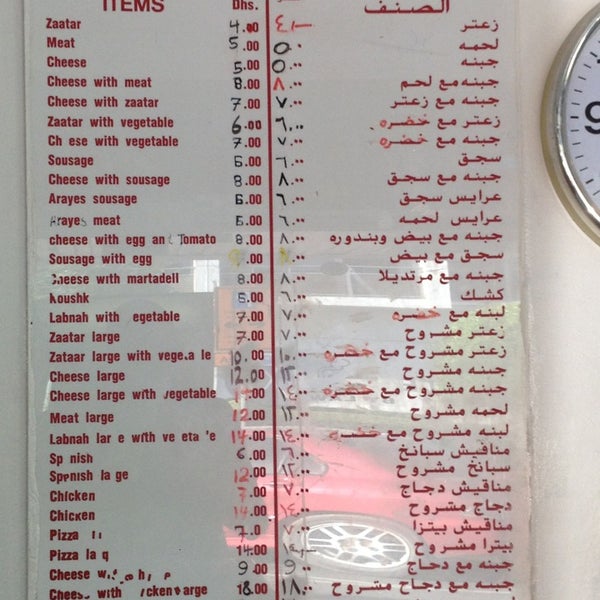 ITEMS Dhs. الصنف
Zaatar 4.00 ٤/- زعتر
Meat 5.00 ٥.٠٠ لحمه
Cheese 5.00 ٥.٠٠ جبنه
Cheese with meat 8.00 ٨.٠٠ جبنه مع لحم
Cheese with zaatar 7.00 ٧.٠٠ جبنه مع زعتر
Zaatar with vegetable 6.00 ٦.٠٠ زعتر مع خضره
Ch ese with vegetable 7.00 ٧.٠٠ جبنه مع خضره
Sousage 6.00 ٦.٠٠ سجق
Cheese with sousage 8.00 ٨.٠٠ جبنه مع سجق
Arayes sousage 6.00 ٦.٠٠ عرايس سجق
Arayes meat 6.00 ٦.٠٠ عرايس لحمه
cheese with egg and Tomato 8.00 ٨.٠٠ جبنه مع بيض وبندوره
Sousage with egg .00 سجق مع بيض
Cheese with martadell 8.00 ٨.٠٠ جبنه مع مرتديلا
Koushk 6.00 ٦.٠٠ كشك
Labnah with egetable 7.00 ٧.٠٠ لبنه مع خضره
Zaatar large 7.00 ٧.٠٠ زعتر مشروح
Zataar large with vege.a le 10.00 ١٠.٠٠ زعتر مشروح مع خضره
Cheese large 12.00 ١٢.٠٠ جبنه مشروح
Cheese large with vegetable 14.00 ١٤.٠٠ جبنه مشروح مع خضره
Meat large 12.00 ١٢.٠٠ لحمه مشروح
Labnah lar e with ve eta 'e 14.00 ١٤.٠٠ لبنه مشروح مع خضره
Sp nish 6.00 ٦.٠٠ مناقيش سبانخ
Spenish la ge 12.00 ١٢.٠٠ سبانخ مشروح
Chicken 7.00 ٧.٠٠ مناقيش دجاج
Chicken 14.00 ١٤.٠٠ دجاج مشروح
Pizza 7.0 ٧.٠٠ مناقيش بيتزا
Pizza la 14.00 بيتزا مشروح
Cheese 9.00 ٩.٠٠ جبنه مع دجاج
Chees with icken large 18.00 ١٨.٠٠ جبنه مع دجاج مشروح
9